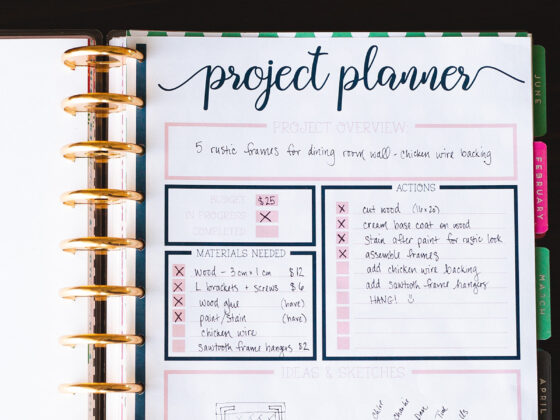 project planner
PROJECT OVERVIEW:
5 rustic frames for dining room wall - chicken wire backing
BUDGET $25
IN PROGRESS X
COMPLETED
MATERIALS NEEDED
X wood - 3cm x 1cm $12
X L brackets + screws $6
X wood glue (have)
X paint/stain (have)
chicken wire
sawtooth frame hangers $2
ACTIONS
X cut wood (16x20)
X cream base coat on wood
X stain after paint for rustic look
X assemble frames
add chicken wire backing
add sawtooth frame hangers
HANG! ☺
IDEAS & SKETCHES
Charlie
JUNE
FEBRUARY
MARCH
APRIL